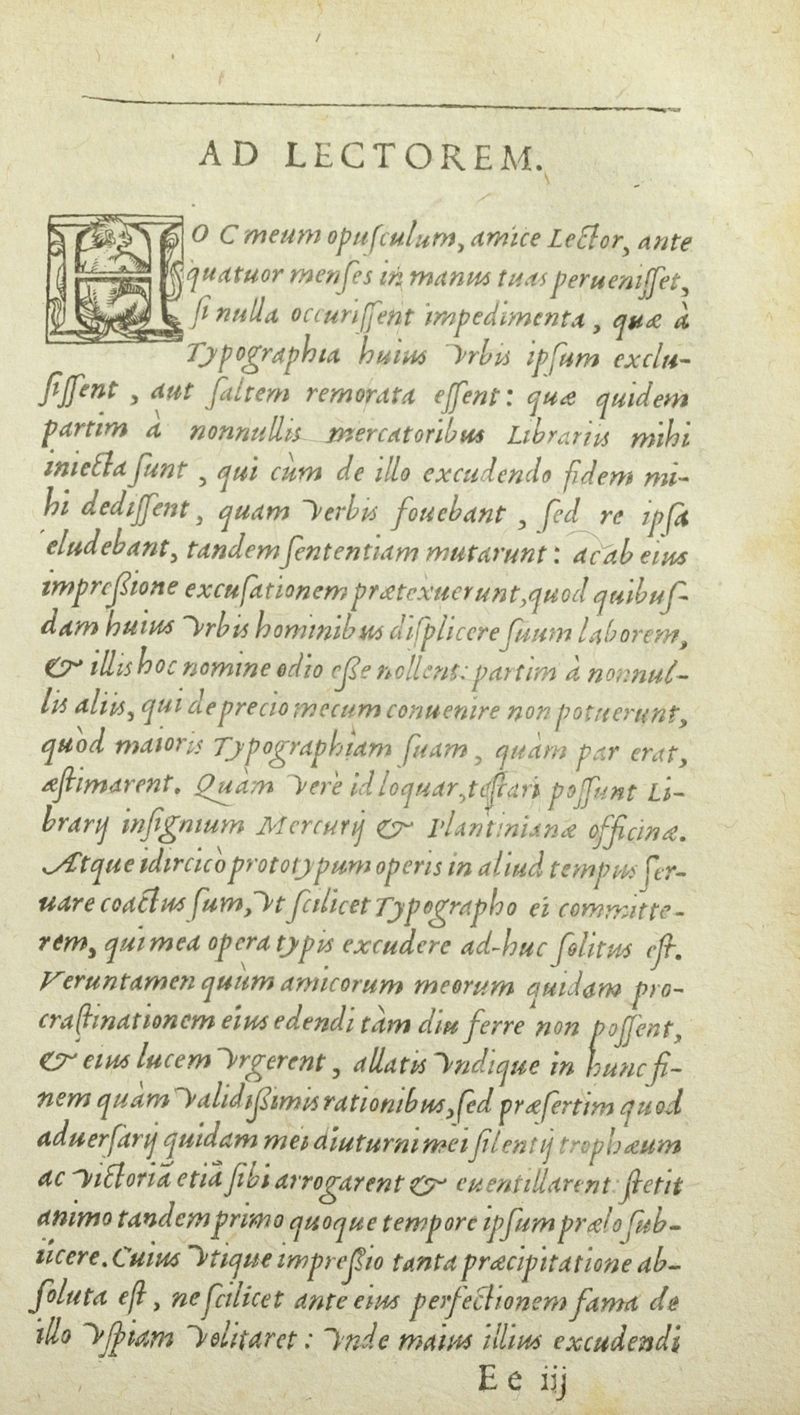 AD LECTOREM.
HOC meum opuſculum, amice Lector, ante
quatuor menſes in manus tuas perueniſſet,
ſi nulla occuriſſent impedimenta, quæ à
Typographia huius Vrbis ipſum exclu-
ſiſſent, aut ſaltem remorata eſſent: quæ quidem
partim à nonnullis mercatoribus Librariis mihi
iniecta ſunt, qui cùm de illo excudendo fidem mi-
hi dediſſent, quam Verbis fouebant, ſed re ipſa
eludebant, tandem ſententiam mutarunt: ac ab eius
impreßione excuſationem prætexuerunt, quod quibuſ-
dam huius Vrbis hominibus diſplicere ſuum laborem,
& illis hoc nomine odio eße nollent: partim à nonnul-
lis aliis, qui de precio mecum conuenire non potuerunt,
quòd maioris Typographiam ſuam, quàm par erat,
æſtimarent. Quàm Verè id loquar, teſtari poſſunt Li-
brarij inſignium Mercurij & Plantinianæ officinæ.
Atque idircicò prototypum operis in aliud tempus ſer-
uare coactus ſum, Vt ſcilicet Typographo ei committe-
rem, qui mea opera typis excudere ad-huc ſolitus eſt.
Veruntamen quùm amicorum meorum quidam pro-
craſtinationem eius edendi tàm diu ferre non poſſent,
& eius lucem Vrgerent, allatis Vndique in hunc fi-
nem quàm Validißimis rationibus, ſed præſertim quod
aduerſarij quidam mei diuturni mei ſilentij trophæum
ac Victoriã etiã ſibi arrogarent & euentillarent: ſtetit
animo tandem primo quoque tempore ipſum prælo ſub-
iicere. Cuius Vtique impreßio tanta præcipitatione ab-
ſoluta eſt, ne ſcilicet ante eius perfectionem fama de
illo Vſpiam Volitaret: Vnde maius illius excudendi
E e iij